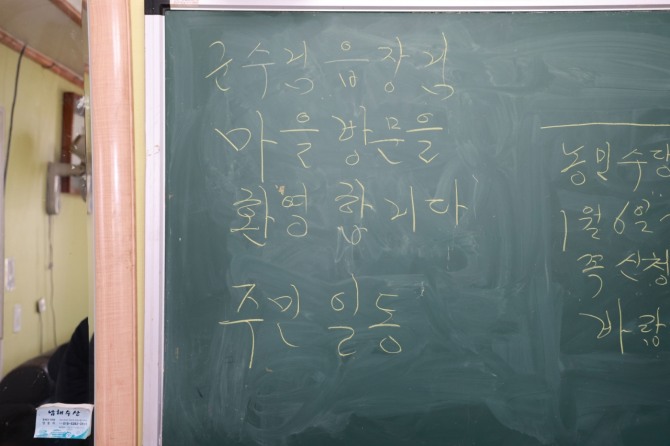 군수님 읍장님
마을 방문을
환영 합니다
주민 일동
농민수당
1월 6일
꼭 신청
바람
남해수산